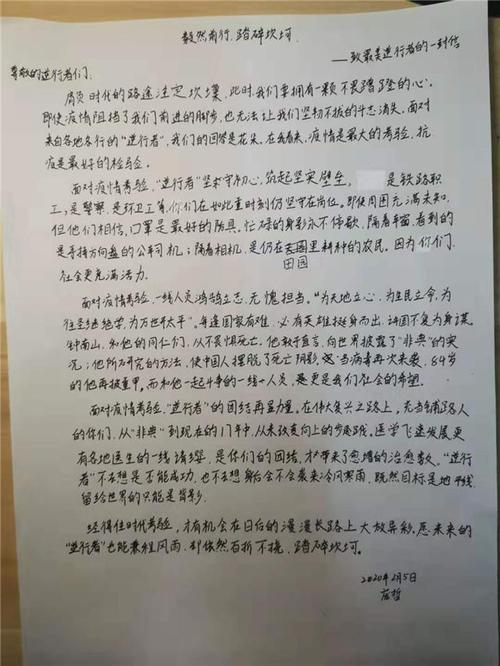 毅然前行,踏碎坎坷.
——致最美逆行者的一封信
尊敬的逆行者们:
肩负时代的路途注定坎壈,此时,我们要拥有一颗不畏蹭蹬的心.
即使疫情阻挡了我们前进的脚步,也无法让我们坚韧不拔的斗志消失,面对
来自各地各行的“逆行者”,我们的回答是花朵,在我看来,疫情是最大的考验,抗
疫是最好的检验。
面对疫情考验,“逆行者”坚守初心,筑起坚实壁垒。是铁路职
工,是警察,是环卫工等,你们在如此重时刻仍坚守在岗位,即使周围充满未知,
但他们相信,口罩是最好的防具,忙碌的身影永不停歇,隔着车窗,看到的
是手持方向盘的公车司机;隔着相机,是仍在田园里耕种的农民。因为你们,
社会更充满活力。
面对疫情考验,一线人员鸿鹄立志,无愧担当。“为天地立心,为生民立命,为
往圣继绝学,为万世开太平”。每逢国家有难,必有英雄挺身而出,许国不复为身谋,
钟南山,和他的同仁们,从不畏惧死亡,他敢于直言,向世界披露了“非典”的实
况;他所研究的方法,使中国人摆脱了死亡阴影,当病毒再次来袭,84岁
的他再披重甲。而和他一起共事的一线人员,更是我们社会的希望。
面对疫情考验,“逆行者”的团结再显力量。在伟大复兴之路上,充当铺路人
的你们,从“非典”到现在的17年中,从未改变向上的步履路线。医学飞速发展,更
有各地医生的一线请缨,是你们的团结,才带来了愈增的治愈者数。“逆行
者”不去想是否能成功,也不去想身后会不会袭来冷风寒雨,既然目标是地平线,
留给世界的只能是背影。
经得住时代考验,才有机会在日后的漫漫长路上大放异彩,愿未来的
“逆行者”也能兼程风雨,却依然百折不挠,踏碎坎坷。
2020年2月5日